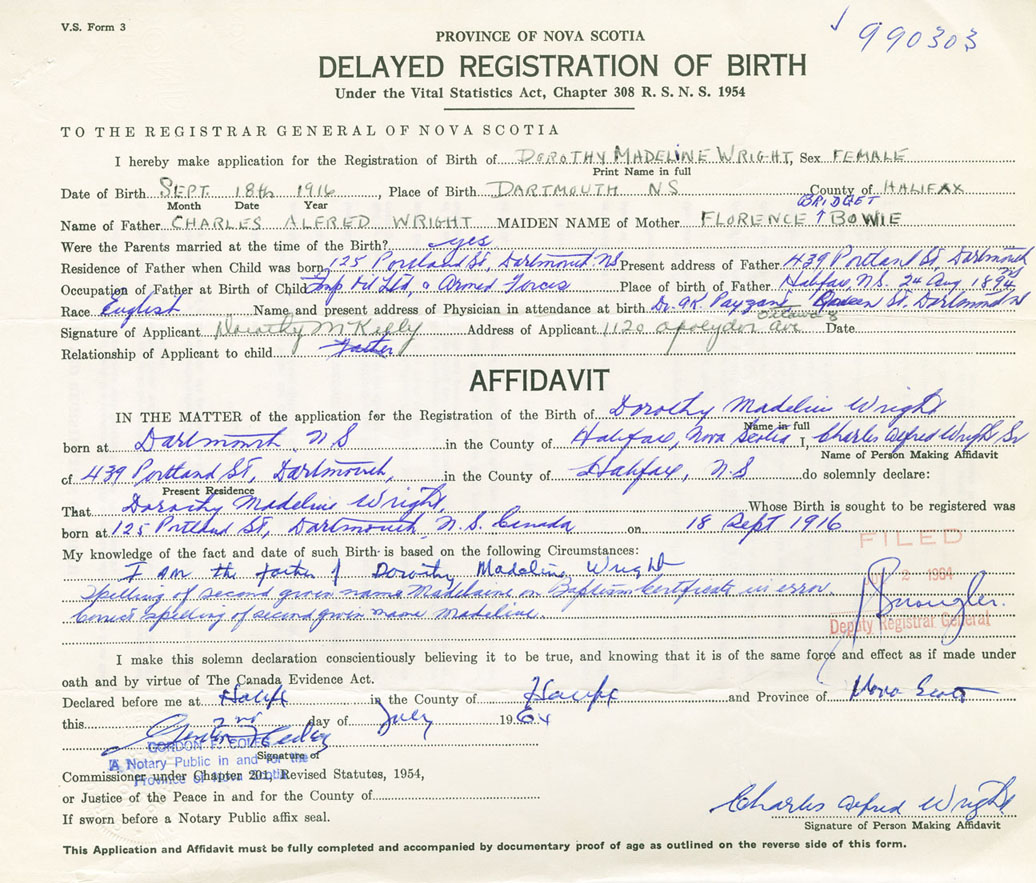 V.S. Form 3
990303
PROVINCE OF NOVA SCOTIA
DELAYED REGISTRATION OF BIRTH
Under the Vital Statistics Act, Chapter 308 R. S. N. S. 1954
TO THE REGISTRAR GENERAL OF NOVA SCOTIA
I hereby make application for the Registration of Birth of DOROTHY MADELINE WRIGHT, Sex FEMALE
Print Name in full
Date of Birth SEPT. 18th 1916, Place of Birth DARTMOUTH NS County of HALIFAX
Month Date Year
BRIDGET
Name of Father CHARLES ALFRED WRIGHT MAIDEN NAME of Mother FLORENCE ↑ BOWIE
Were the Parents married at the time of the Birth? yes
Residence of Father when Child was born 125 Portland St, Dartmouth NS Present address of Father 439 Portland St, Dartmouth NS
Occupation of Father at Birth of Child Imp Oil Ltd, & Armed Forces Place of birth of Father Halifax, N.S. 24 Aug 1894
Race English Name and present address of Physician in attendance at birth Dr. St, Dartmouth
Ottawa 8
Signature of Applicant Dorothy Address of Applicant 1120 Apolydor Ave Date
Relationship of Applicant to child Father
AFFIDAVIT
IN THE MATTER of the application for the Registration of the Birth of Dorothy Madeline Wright
Name in full
born at Dartmouth, NS in the County of Halifax, Nova Scotia I, Charles Alfred Wright Sr
Name of Person Making Affidavit
of 439 Portland St, Dartmouth, in the County of Halifax, N-S do solemnly declare:
Present Residence
That Dorothy Madeline Wright, Whose Birth is sought to be registered was
born at 125 Portland St, Dartmouth, N.S. Canada on 18 Sept 1916
My knowledge of the fact and date of such Birth is based on the following Circumstances:
I am the father of Dorothy Madeline Wright
Spelling of second given name Madelaine on Baptism Certificate in error.
Correct spelling of second given name Madeline.
FILED
2 1964
Deputy Registrar General
I make this solemn declaration conscientiously believing it to be true, and knowing that it is of the same force and effect as if made under
oath and by virtue of The Canada Evidence Act.
Declared before me at Halifx in the County of Halifx and Province of Nova Scotia
this 2nd day of July 1964
GORDON F. COLES
Signature of
A Notary Public in and for the
Province of Nova Scotia
Commissioner under Chapter 201, Revised Statutes, 1954,
or Justice of the Peace in and for the County of
If sworn before a Notary Public affix seal.
Charles Alfred Wright
Signature of Person Making Affidavit
This Application and Affidavit must be fully completed and accompanied by documentary proof of age as outlined on the reverse side of this form.